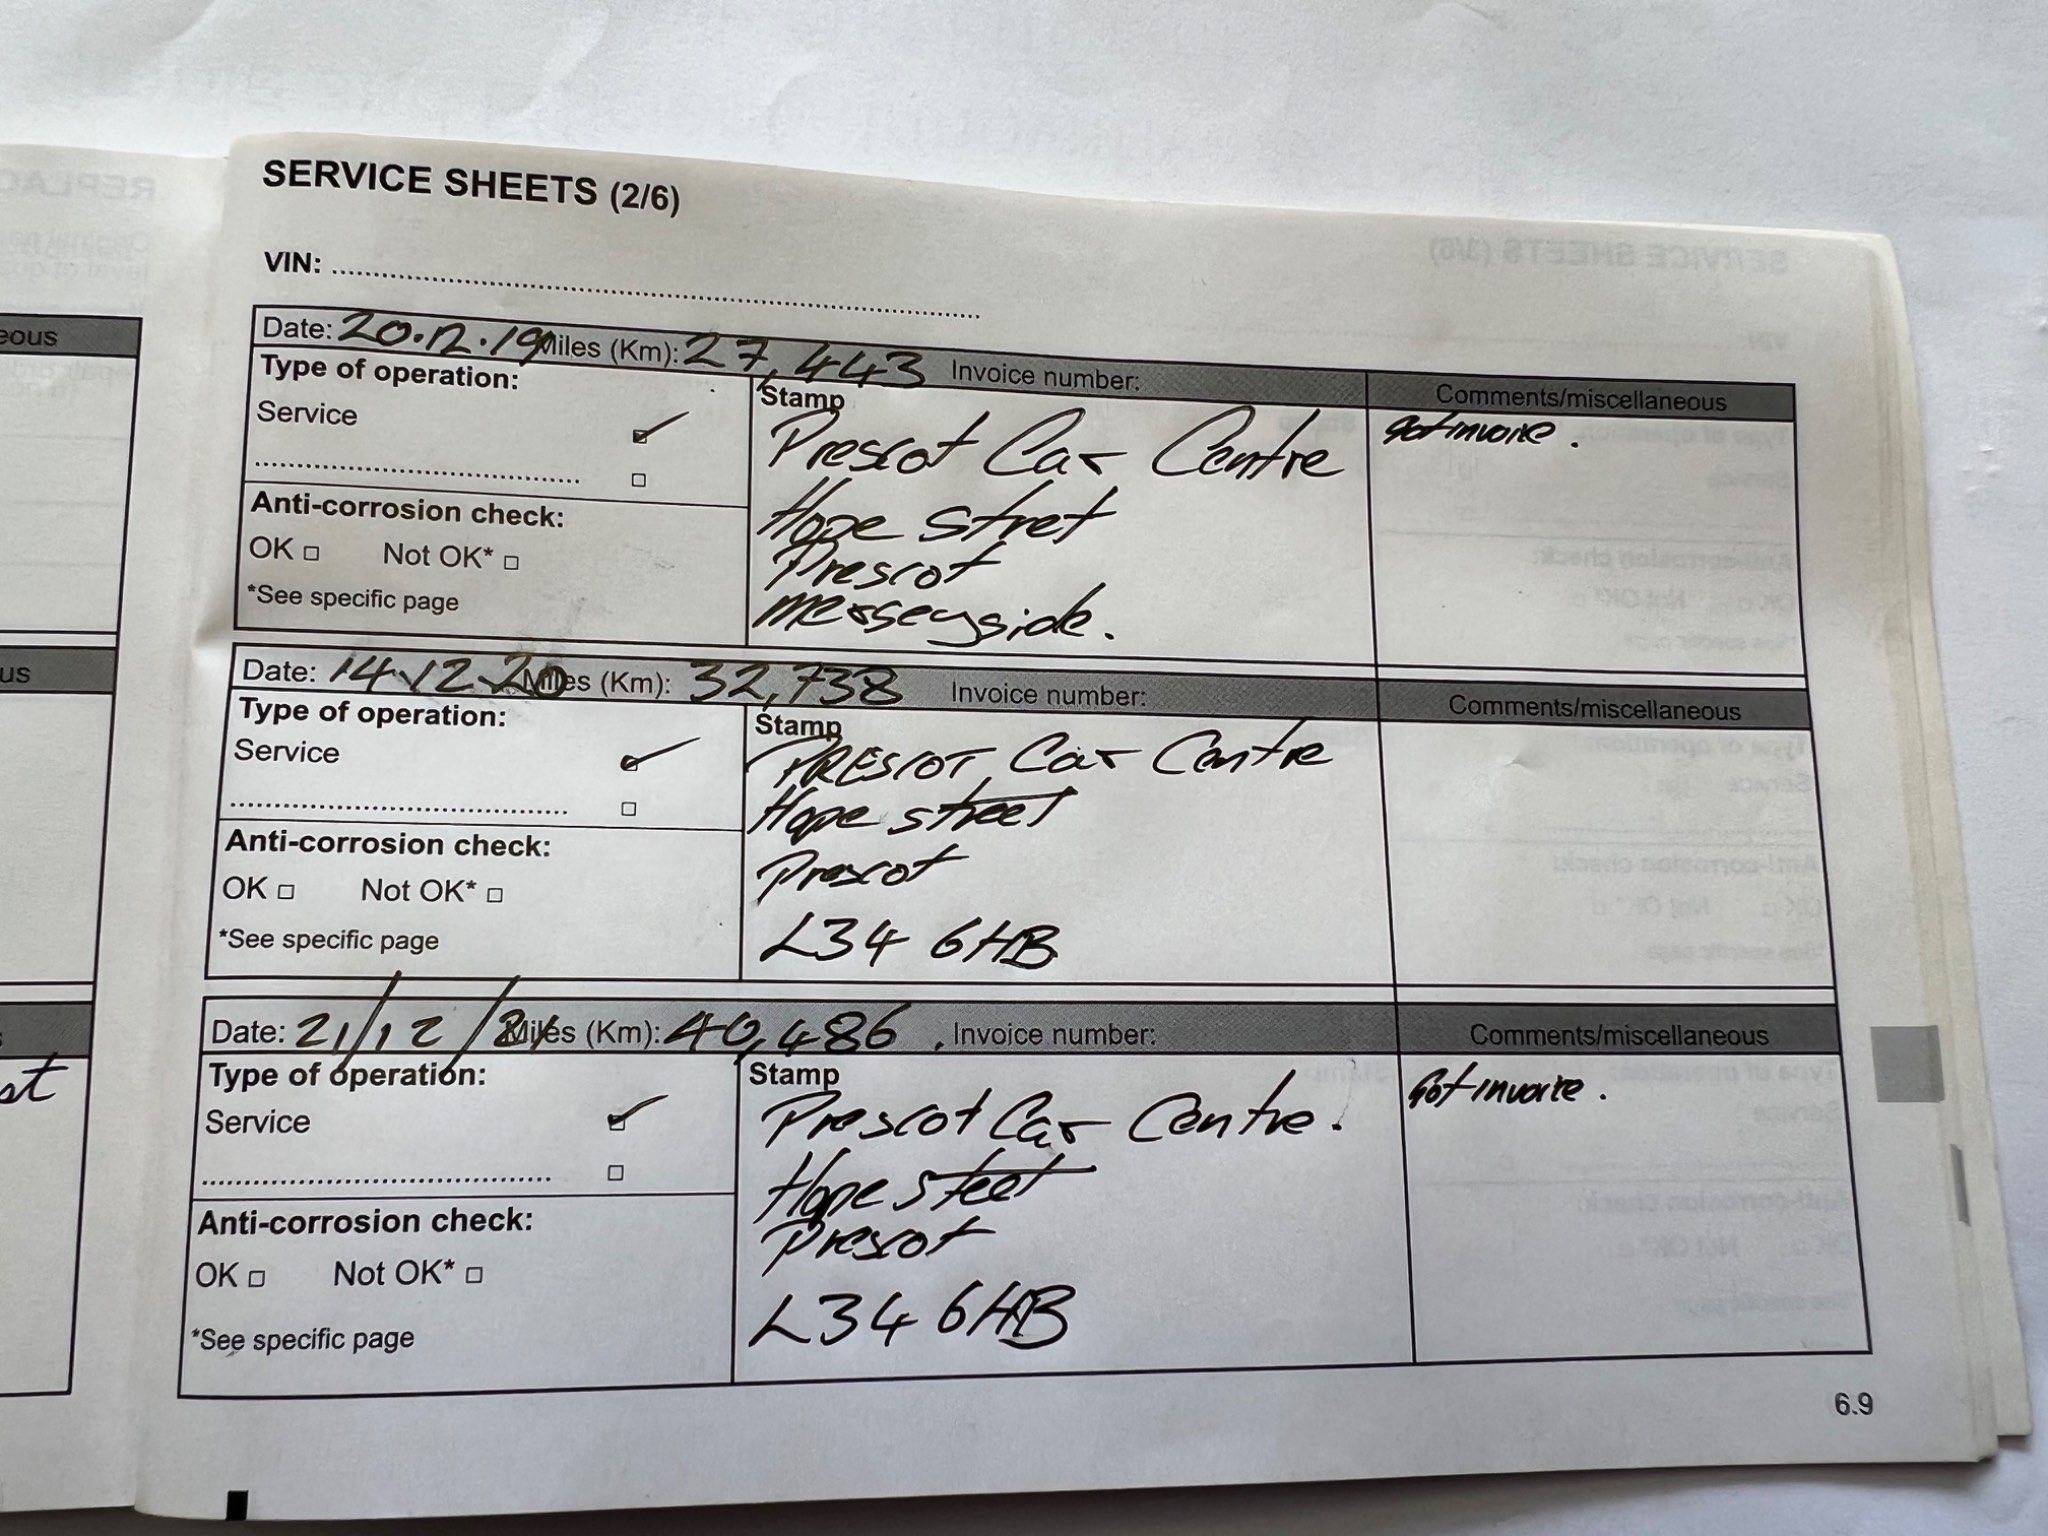 SERVICE SHEETS (2/6)
VIN:
Date: 20.12.19 Miles (Km): 27,443 Invoice number:
Comments/miscellaneous
Type of operation:
Service
Stamp
Prescot Car Centre
Hope Stret
Prescot
Merseyside.
Got invoice.
Anti-corrosion check:
OK Not OK*
*See specific page
Date: 14.12.20 Miles (Km): 32,738 Invoice number:
Comments/miscellaneous
Type of operation:
Service
Stamp
PRESCOT Car Centre
Hope street
Prescot
L34 6HB
Anti-corrosion check:
OK Not OK*
*See specific page
Date: 21/12/21 Miles (Km): 40,486. Invoice number:
Comments/miscellaneous
Type of operation:
Service
Stamp
Prescot Car Centre.
Hope steet
Prescot
L34 6HB
Got invoice.
Anti-corrosion check:
OK Not OK*
*See specific page
6.9
eous
us
st